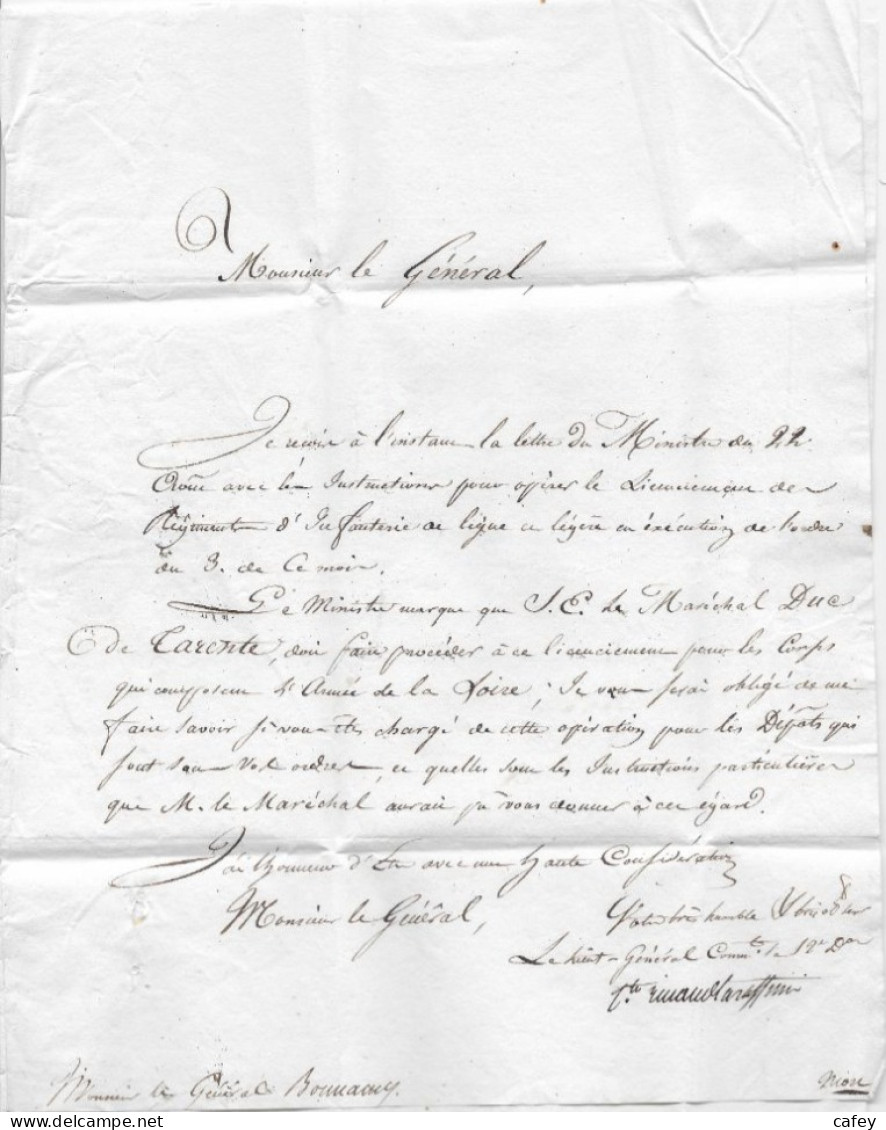 Monsieur le Général,
Je reçois à l'instant la lettre du Ministre du 22
Août avec les Instructions pour opérer le Licenciement des
Régiments d'Infanterie de ligne et légère en éxécution de l'ordre
du 3. de Ce mois.
Le Ministre marque que S. E. le Maréchal Duc
de Tarente, doit faire procéder à ce licenciement pour les Corps
qui composent l'Armée de la Loire; Je vous serai obligé de me
faire savoir si vous êtes chargé de cette opération pour les Dépôts qui
sont sous vos ordres, et quelles sont les Instructions particulières
que M. le Maréchal aurait pû vous donner à cet égard.
J'ai l'honneur d'Etre avec une haute Considération
Monsieur le Général,
Votre très humble & très obt ser
Le Lieut-Général Commt. la 12e Don
Monsieur le Général Bonnamy.
Niort
cafey